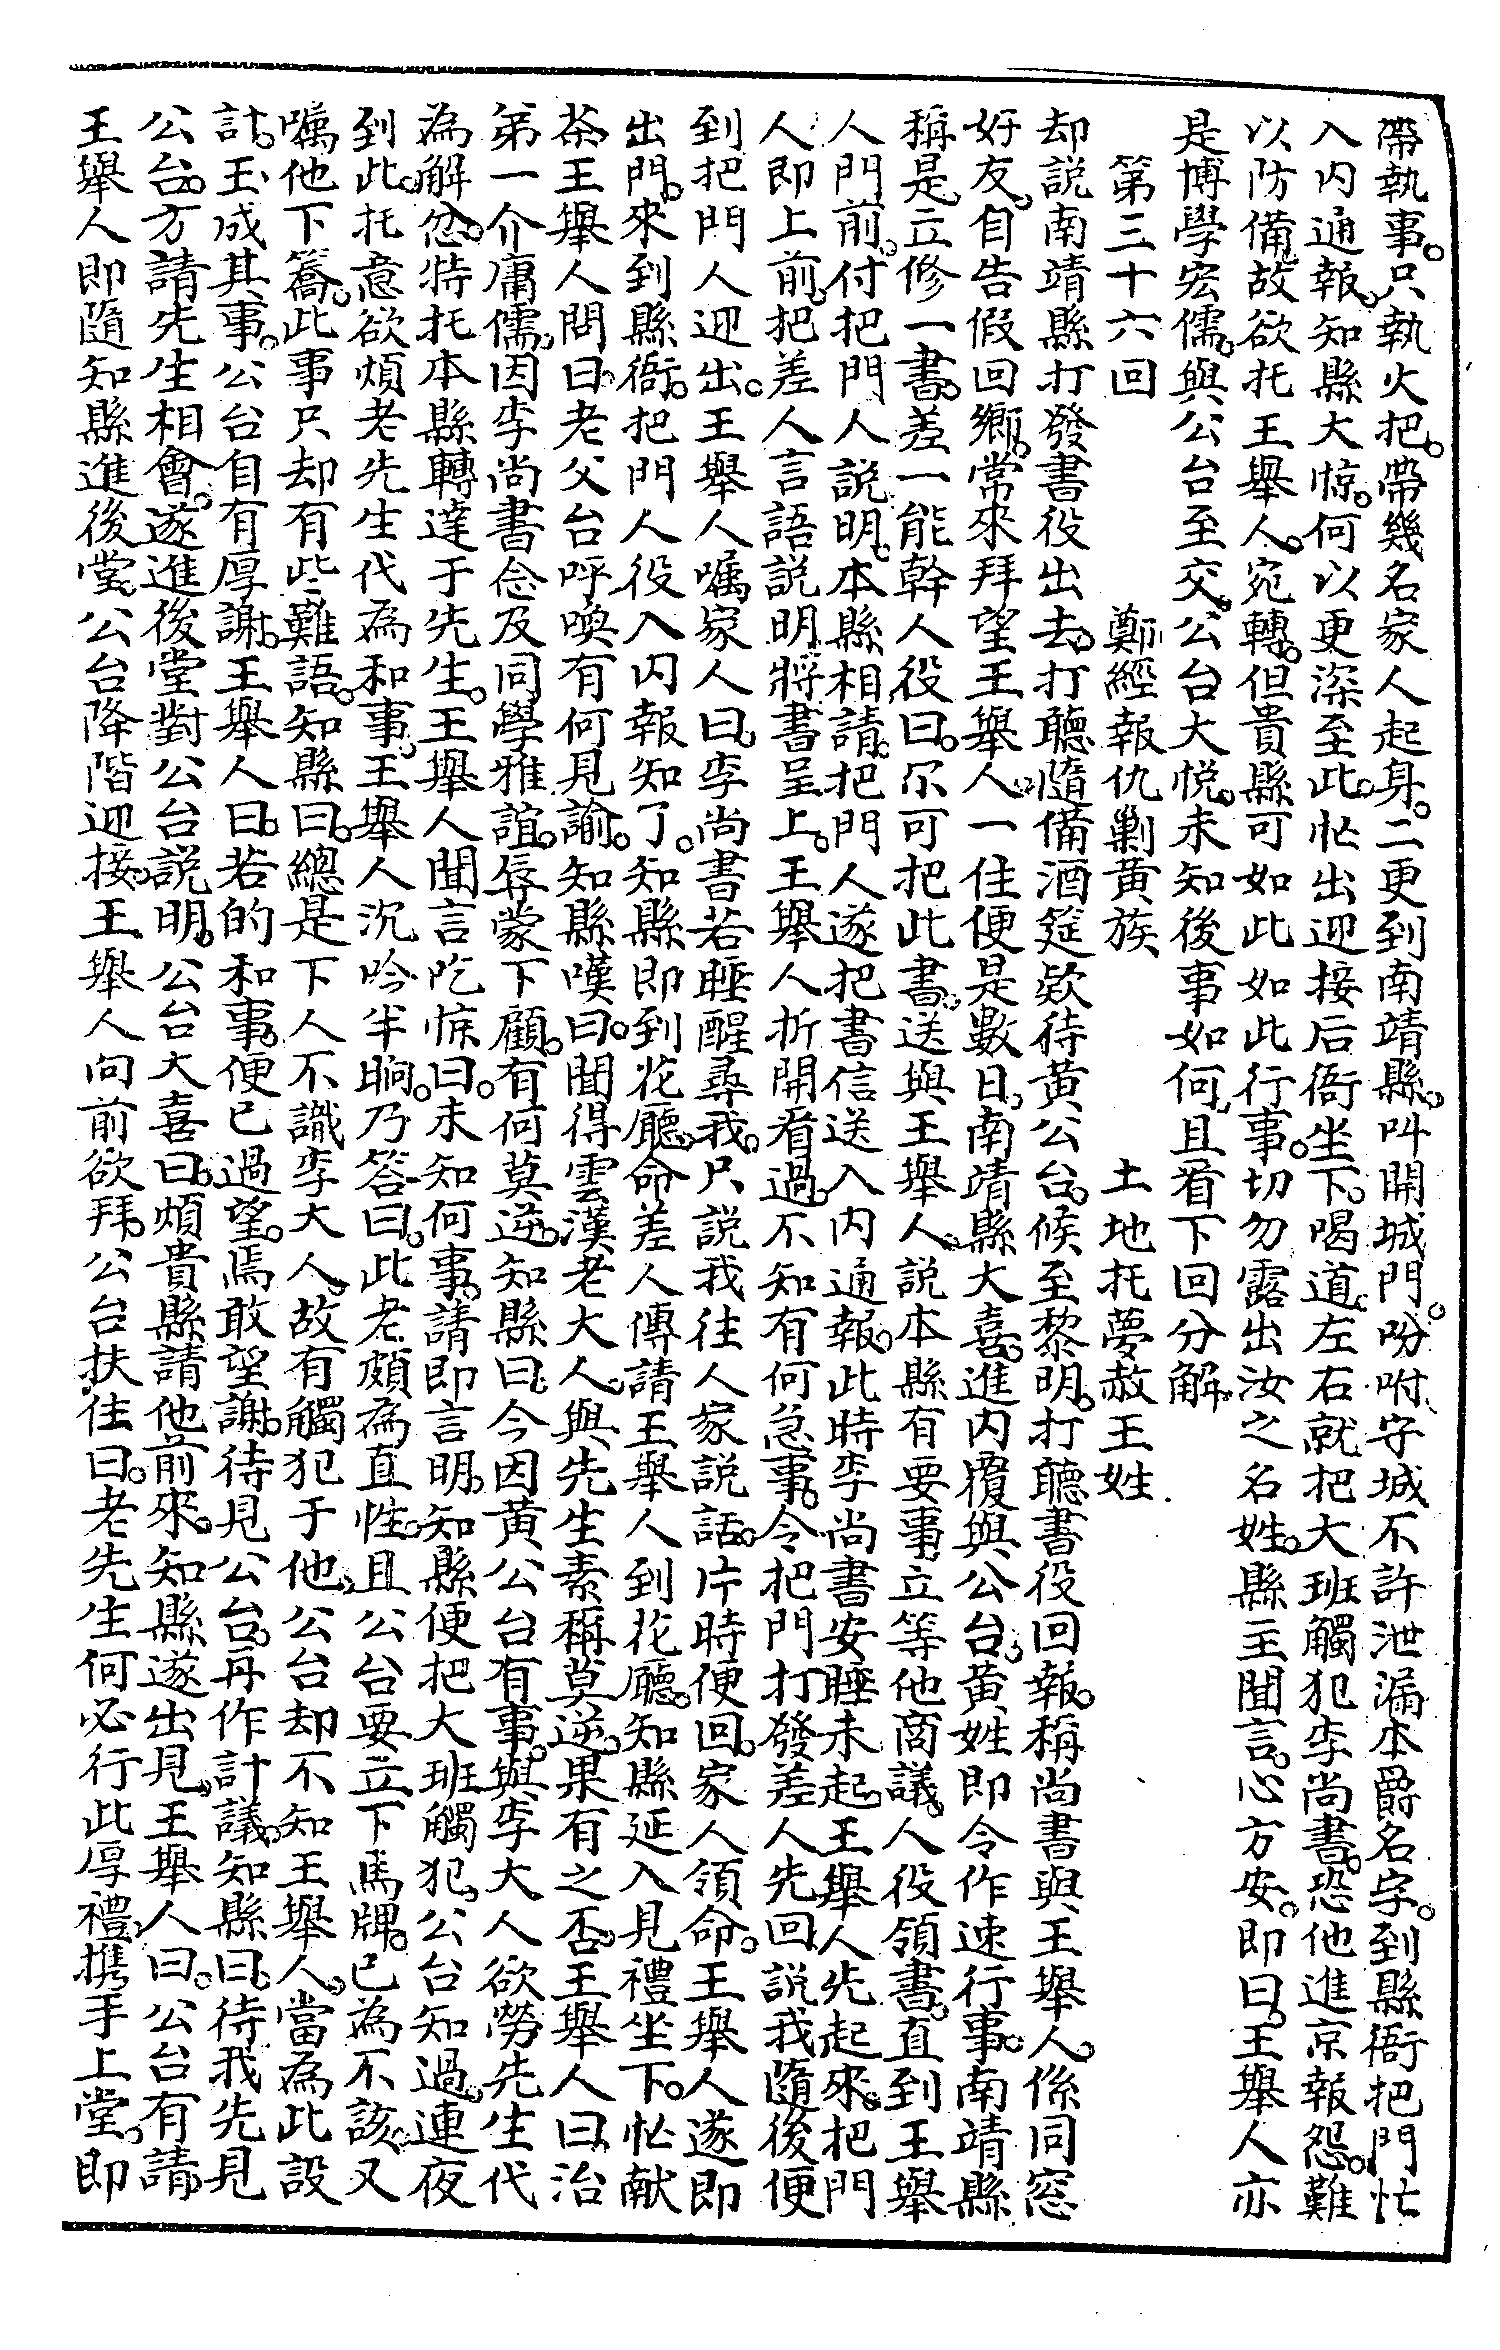 帶執事。只執火把。帶幾名家人起身。二更到南靖縣。叫開城門。吩咐守城不許泄漏本爵名字。到縣衙把門忙
入內通報。知縣大惊。何以更深至此。忙出迎接后衙坐下。喝道左右就把大班觸犯李尚書。恐他進京報怨。難
以防備。故欲托王舉人。宛轉。但貴縣可如此如此行事。切勿露出汝之名姓。縣主聞言。心方安。即曰。王舉人亦
是博學宏儒。與公台至交。公台大悅。未知後事如何。且看下回分解。
第三十六回　鄭經報仇剿黃族　土地托夢赦王姓
却說南靖縣打發書役出去。打聽隨備酒筵欵待黃公台。候至黎明。打聽書役回報。稱尚書與王舉人。係同窓
好友。自告假回鄉。常來拜望王舉人。一住便是數日。南靖縣大喜。進內覆與公台。黃姓即令作速行事。南靖縣
稱是。立修一書。差一能幹人役曰。尔可把此書。送與王舉人。說本縣有要事立等他商議。人役領書。直到王舉
人門前。付把門人說明。本縣相請。把門人遂把書信送入內通報。此時李尚書安睡未起。王舉人先起來。把門
人即上前。把差人言語說明。將書呈上。王舉人折開看過。不知有何急事。令把門打發差人先回說我隨後便
到把門人迎出。王舉人嘱家人曰。李尚書若睡醒尋我。只說我往人家說話。片時便回。家人領命。王舉人遂即
出門。來到縣衙。把門人役入內報知了。知縣即到花廳。命差人傳請王舉人到花廳。知縣延入見禮坐下。忙献
茶王舉人問曰。老父台呼喚有何見諭。知縣嘆曰。聞得雲漢老大人。與先生素稱莫逆。果有之否。王舉人曰。治
第一介庸儒。因李尚書念及同學雅誼。辱蒙下顧。有何莫逆。知縣曰。今因黃公台有事。與李大人欲勞先生代
為解忿。特托本縣轉達于先生。王舉人聞言吃惊曰。未知何事。請即言明。知縣便把大班觸犯。公台知過。連夜
到此。托意欲煩老先生代為和事。王舉人沉吟半晌。乃答曰。此老頗為直性。且公台要立下馬牌。已為不該。又
嘱他下簥。此事只却有些難語。知縣曰。總是下人不識李大人。故有觸犯于他。公台却不知王舉人。當為此設
計。玉成其事。公台自有厚謝。王舉人曰。若的和事。便已過望。焉敢望謝。待見公台。再作計議。知縣曰。待我先見
公台。方請先生相會。遂進後堂對公台說明。公台大喜曰。煩貴縣請他前來。知縣遂出見。王舉人曰。公台有請。
王舉人即隨知縣進後堂。公台降階迎接。王舉人向前欲拜。公台扶住曰。老先生何必行此厚禮。攜手上堂。即